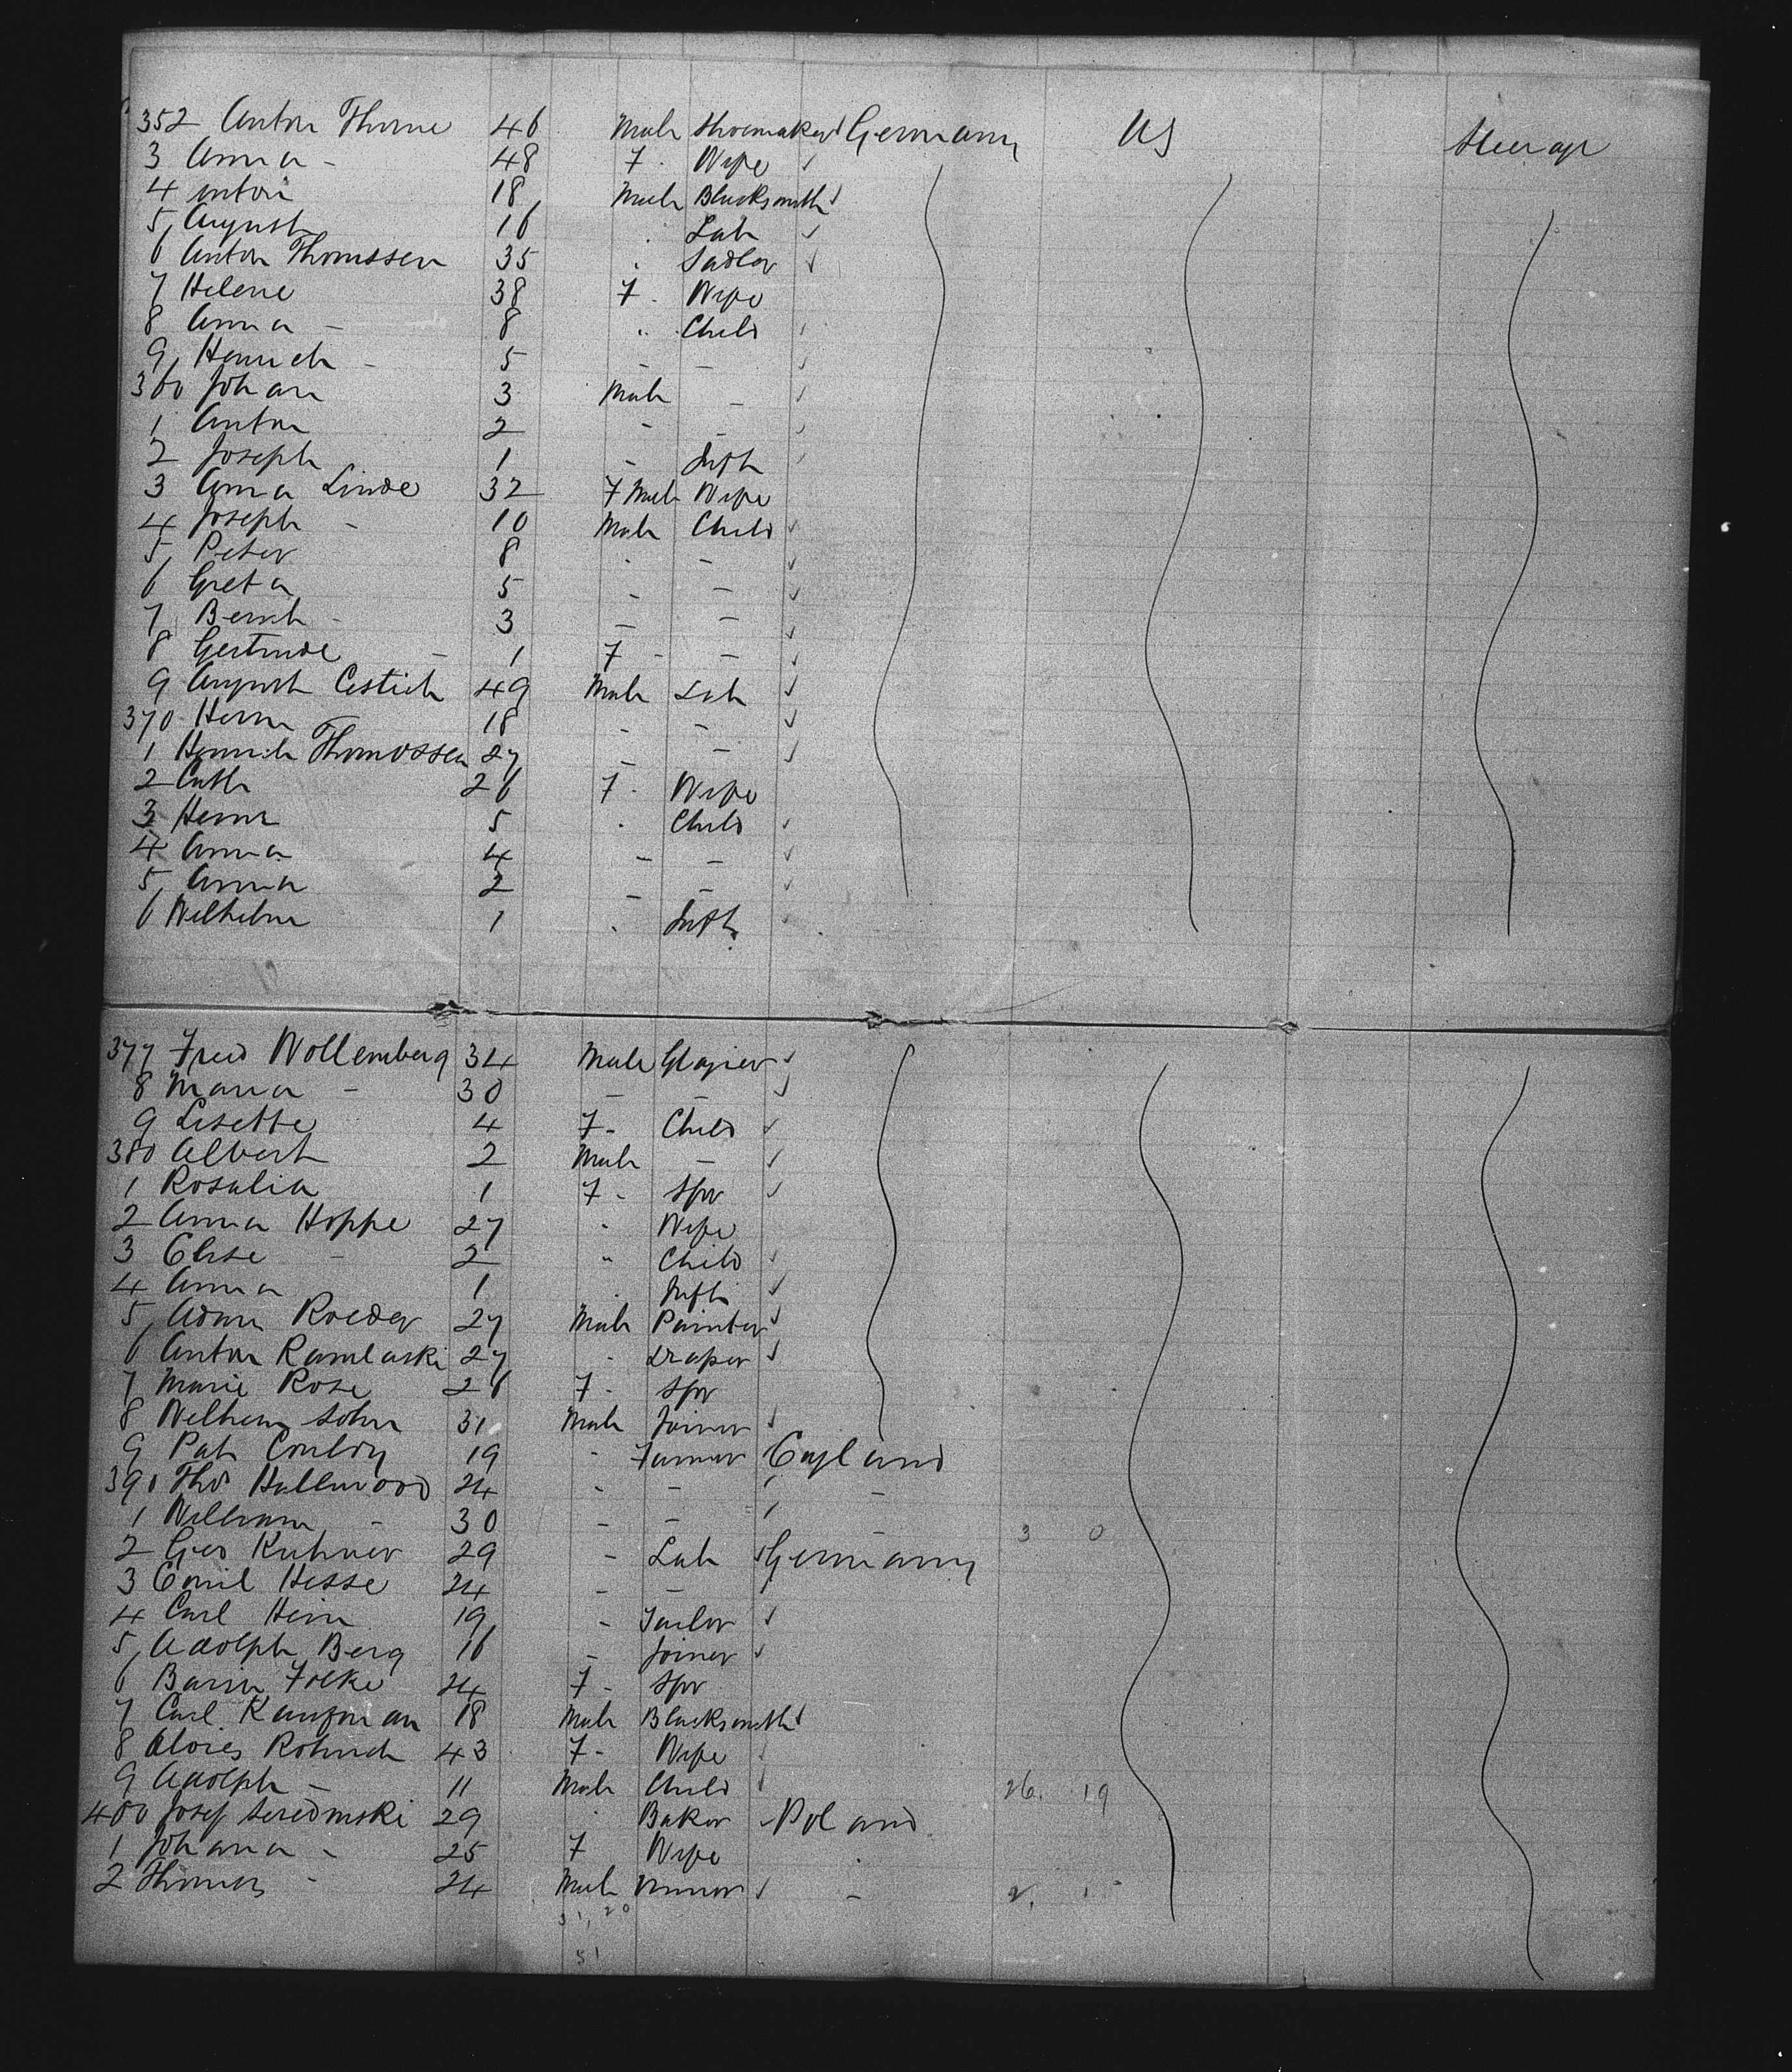 352 Anton Thome 46 Male Shoemaker Germany US Steerage
3 Anna - 48 F. Wife
4 Anton 18 Male Blacksmith
5 August 16 . Lab
6 Anton Thomssen 35 . Sadler
7 Helene 38 F. Wife
8 Anna - 8 " Child
9 Heinrich - 5 - -
360 Johan 3 Male -
1 Anton 2 - -
2 Joseph 1 - Inft
3 Anna Linde 32 Fmale Wife
4 Joseph - 10 Male Child
5 Peter 8 . -
6 Greta 5 - -
7 Bernh - 3 - -
8 Gertrude - 1 F - -
9 August 49 Male Lab
370 Herm 18 - -
1 Heinrich Thomossen 27 - -
2 Cath 26 F. Wife
3 Herm 5 . Child
4 Anna 4 - -
5 Anna 2 - -
6 Wilhelm 1 . Inft.
377 Fred Wollemberg 34 Male Glazier
8 Maria - 30 - -
9 Lisette 4 F- Child
380 Albert 2 Male -
1 Rosalia 1 F- Spr
2 Anna Hoppe 27 " Wife
3 Elise - 2 " Child
4 Anna 1 . Inft
5 Adam Roeder 27 Male Painter
6 Anton Ramlaski 27 . Draper
7 Marie Rose 26 F- Spr
8 Wilhem Sohn 31 Male Joiner
9 Pat Conboy 19 - Farmer England
390 Tho Hallwood 24 - - -
1 William - 30 - - -
2 Geo Kuhner 29 - Lab Germany 3 0
3 Emil Hesse 24 - -
4 Carl Hein 19 - Tailor
5 Adolph Berg 16 - Joiner
6 Folke 24 F- Spr
7 Carl Kaufman 18 Male Blacksmith
8 43 F- Wife
9 Adolph - 11 Male Child 26. 19
400 Josef 29 . Baker Poland
1 Johana - 25 F Wife .
2 Thomas - 24 Male Miner - 2. 1
31, 20
51